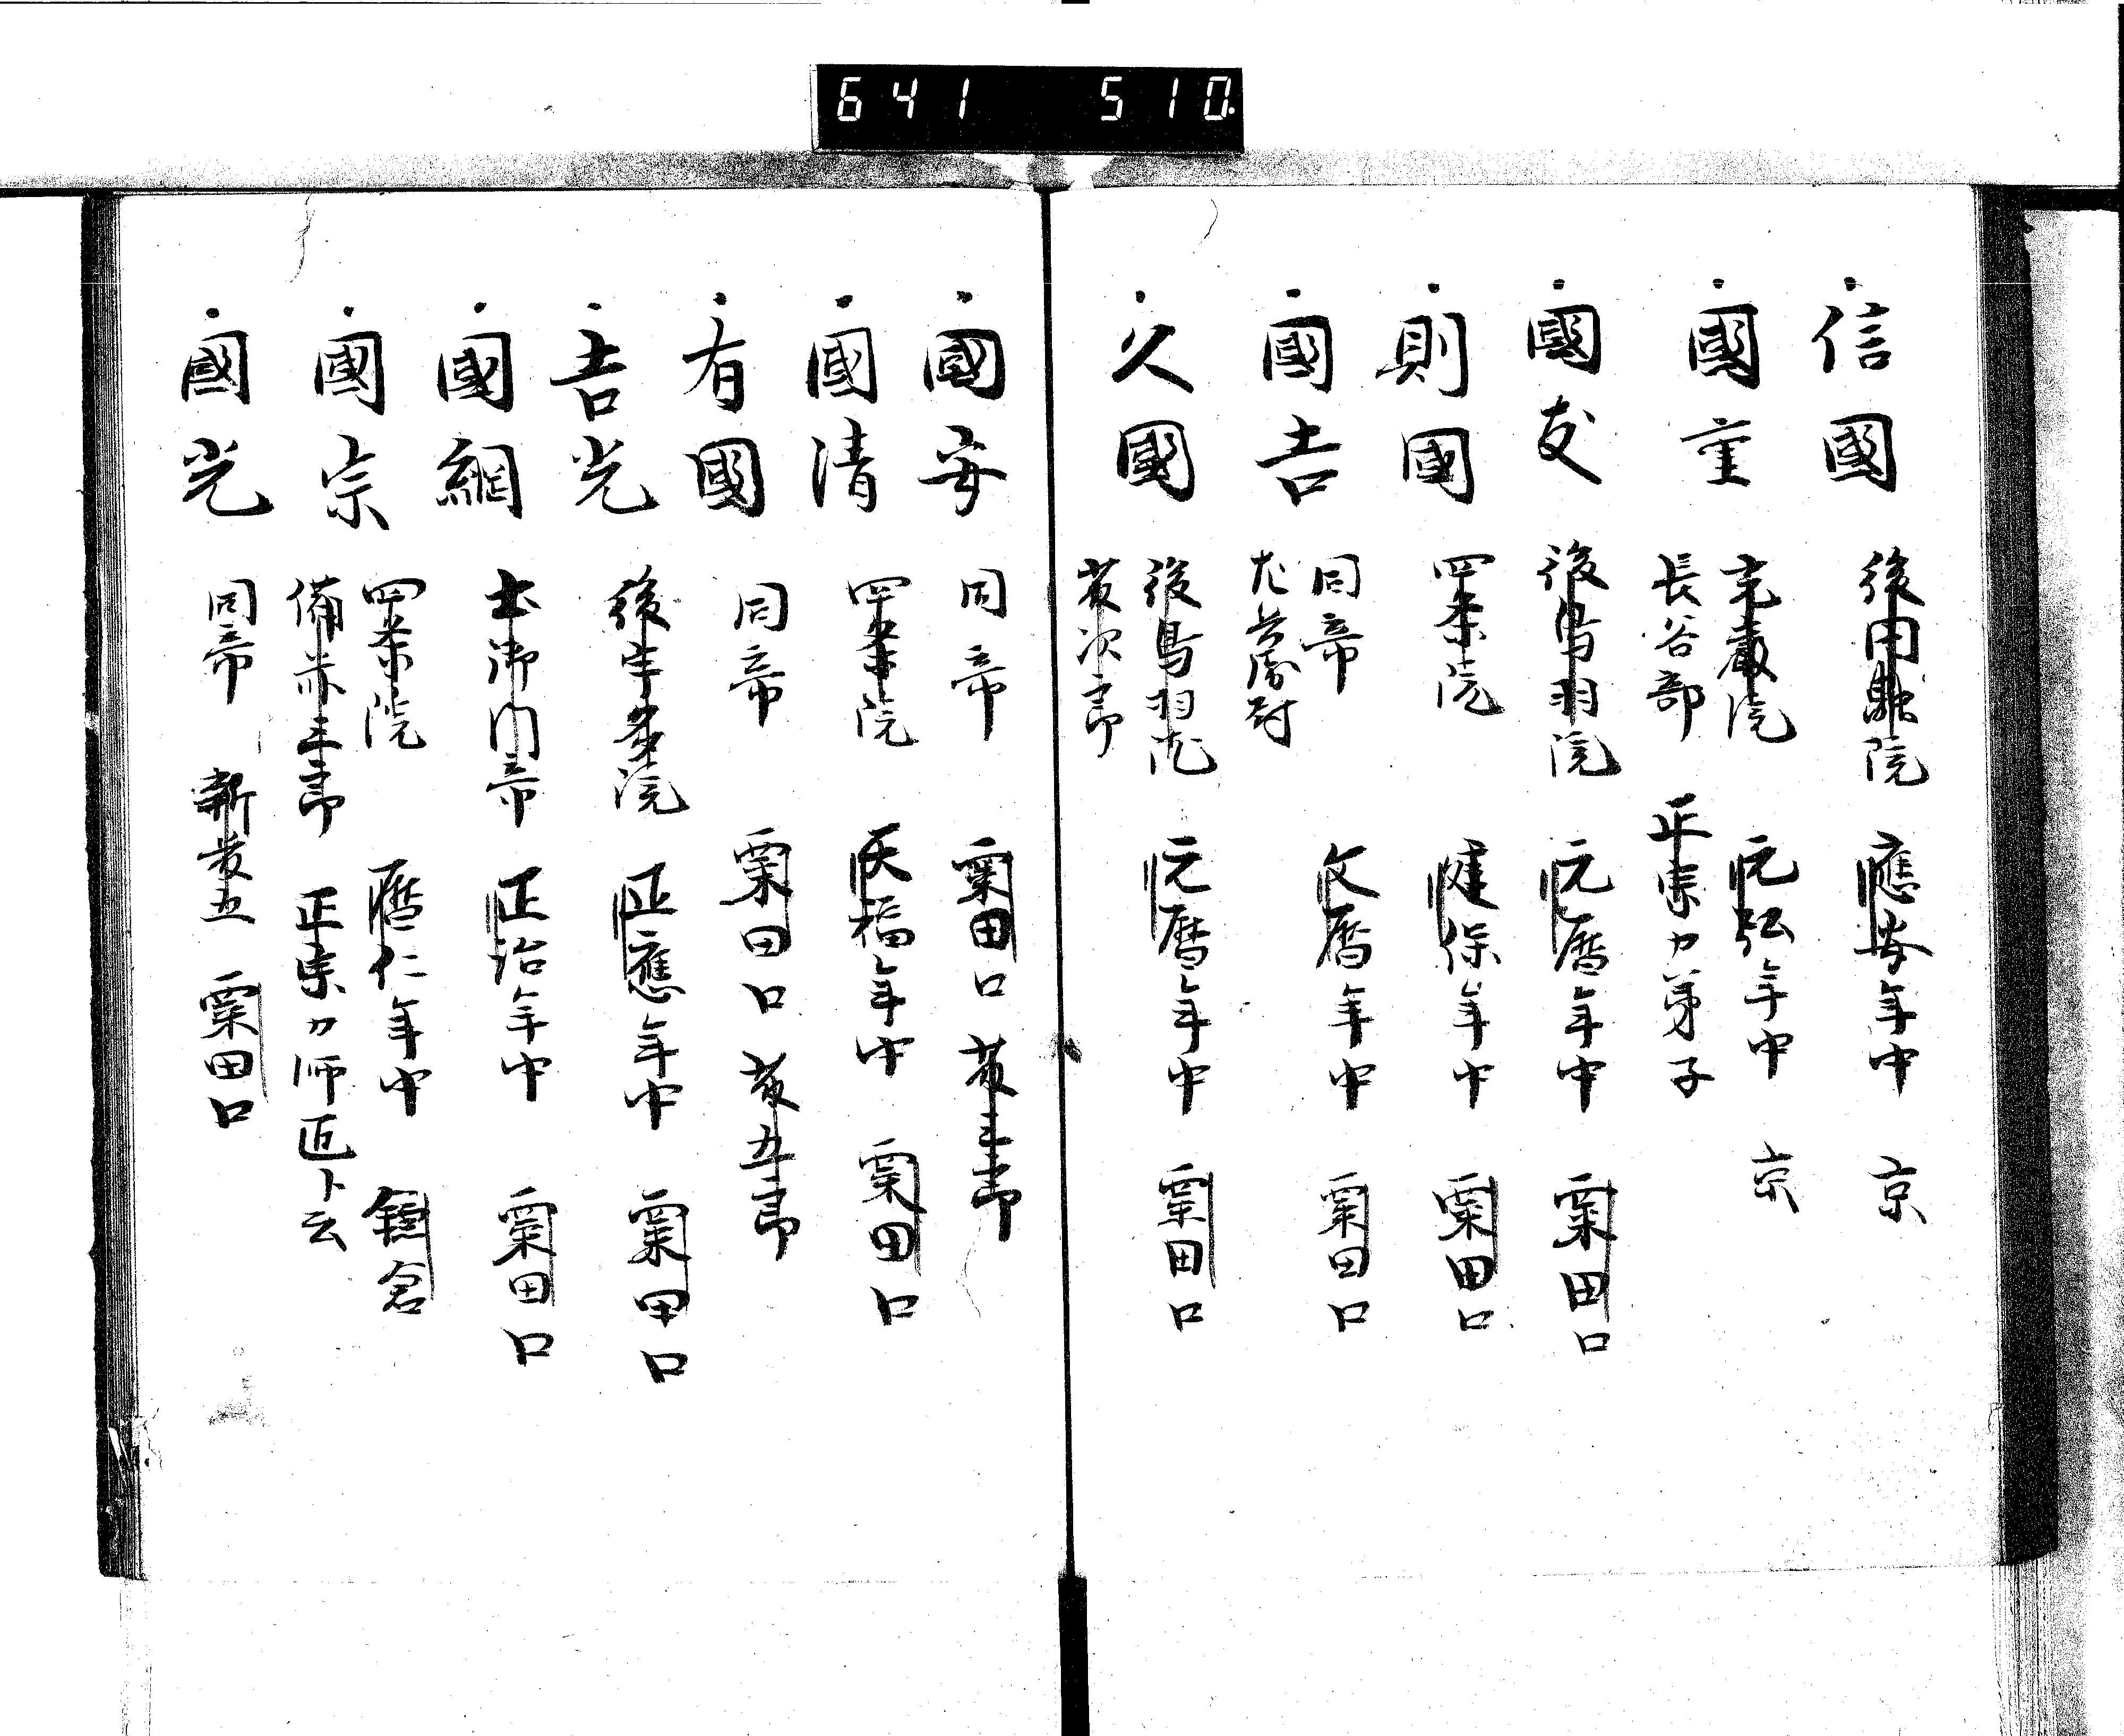 641 510.
信國 後円融院 應安年中 京
國重 光嚴院 元弘年中 京
長谷部 正宗カ弟子
國友 後鳥羽院 元暦年中 粟田口
則國 四条院 建保年中 粟田口
國吉 同帝 文暦年中 粟田口
左兵衛尉
久國 後鳥羽院 元暦年中 粟田口
藤次郎
國安 同帝 粟田口 藤三郎
國清 四条院 天福年中 粟田口
有國 同帝 粟田口 藤五郎
吉光 後宇多院 正應年中 粟田口
國綱 土御門帝 正治年中 粟田口
國宗 四条院 暦仁年中 鎌倉
備前三郎 正宗カ師匠ト云
國光 同帝 新藤五 粟田口